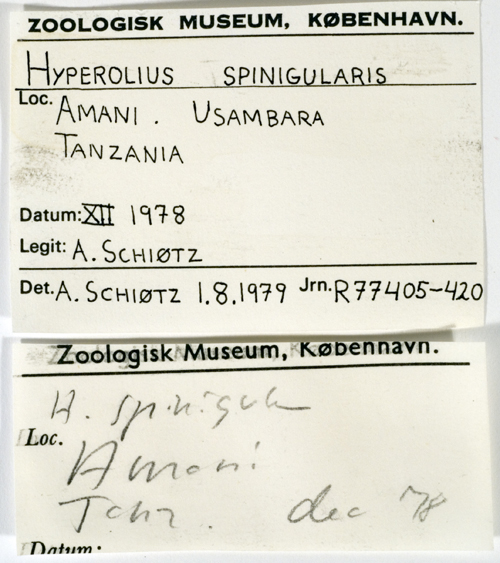 ZOOLOGISK MUSEUM, KØBENHAVN.
HYPEROLIUS SPINIGULARIS
Loc. AMANI. USAMBARA
TANZANIA
Datum: XII 1978
Legit: A. SCHIØTZ
Det. A. SCHIØTZ 1.8.1979 Jrn. R77405-420
Zoologisk Museum, København.
H. spinigul
Loc.
Amani
Tanz. dec 78
Datum: